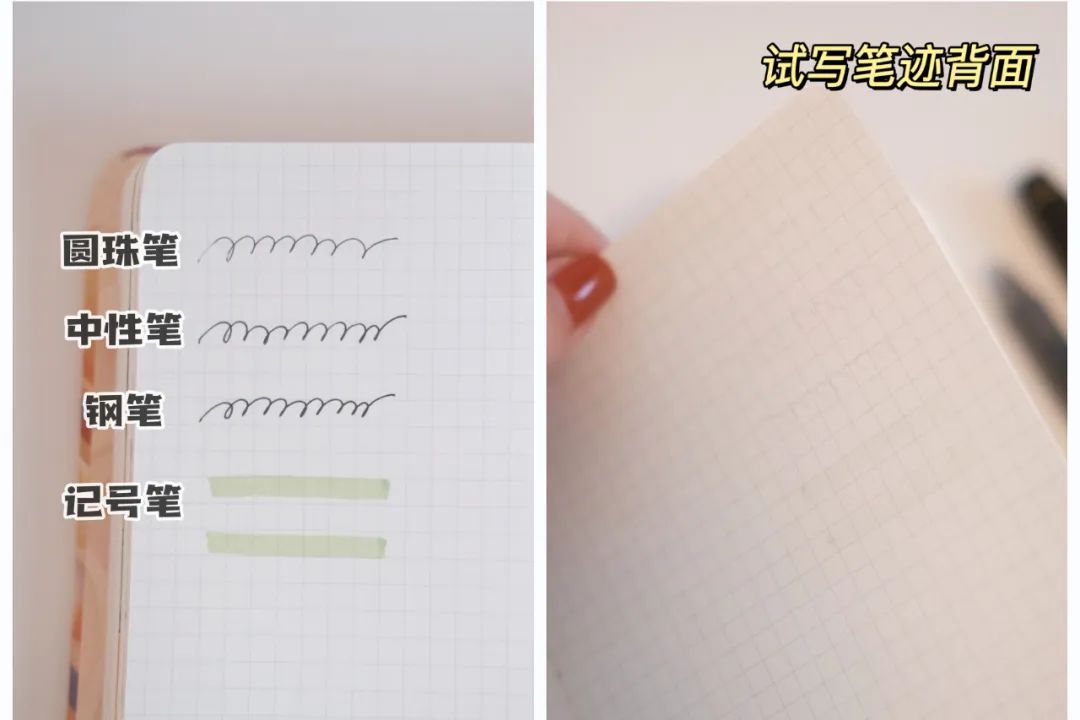 圆珠笔
中性笔
钢笔
记号笔
试写笔迹背面